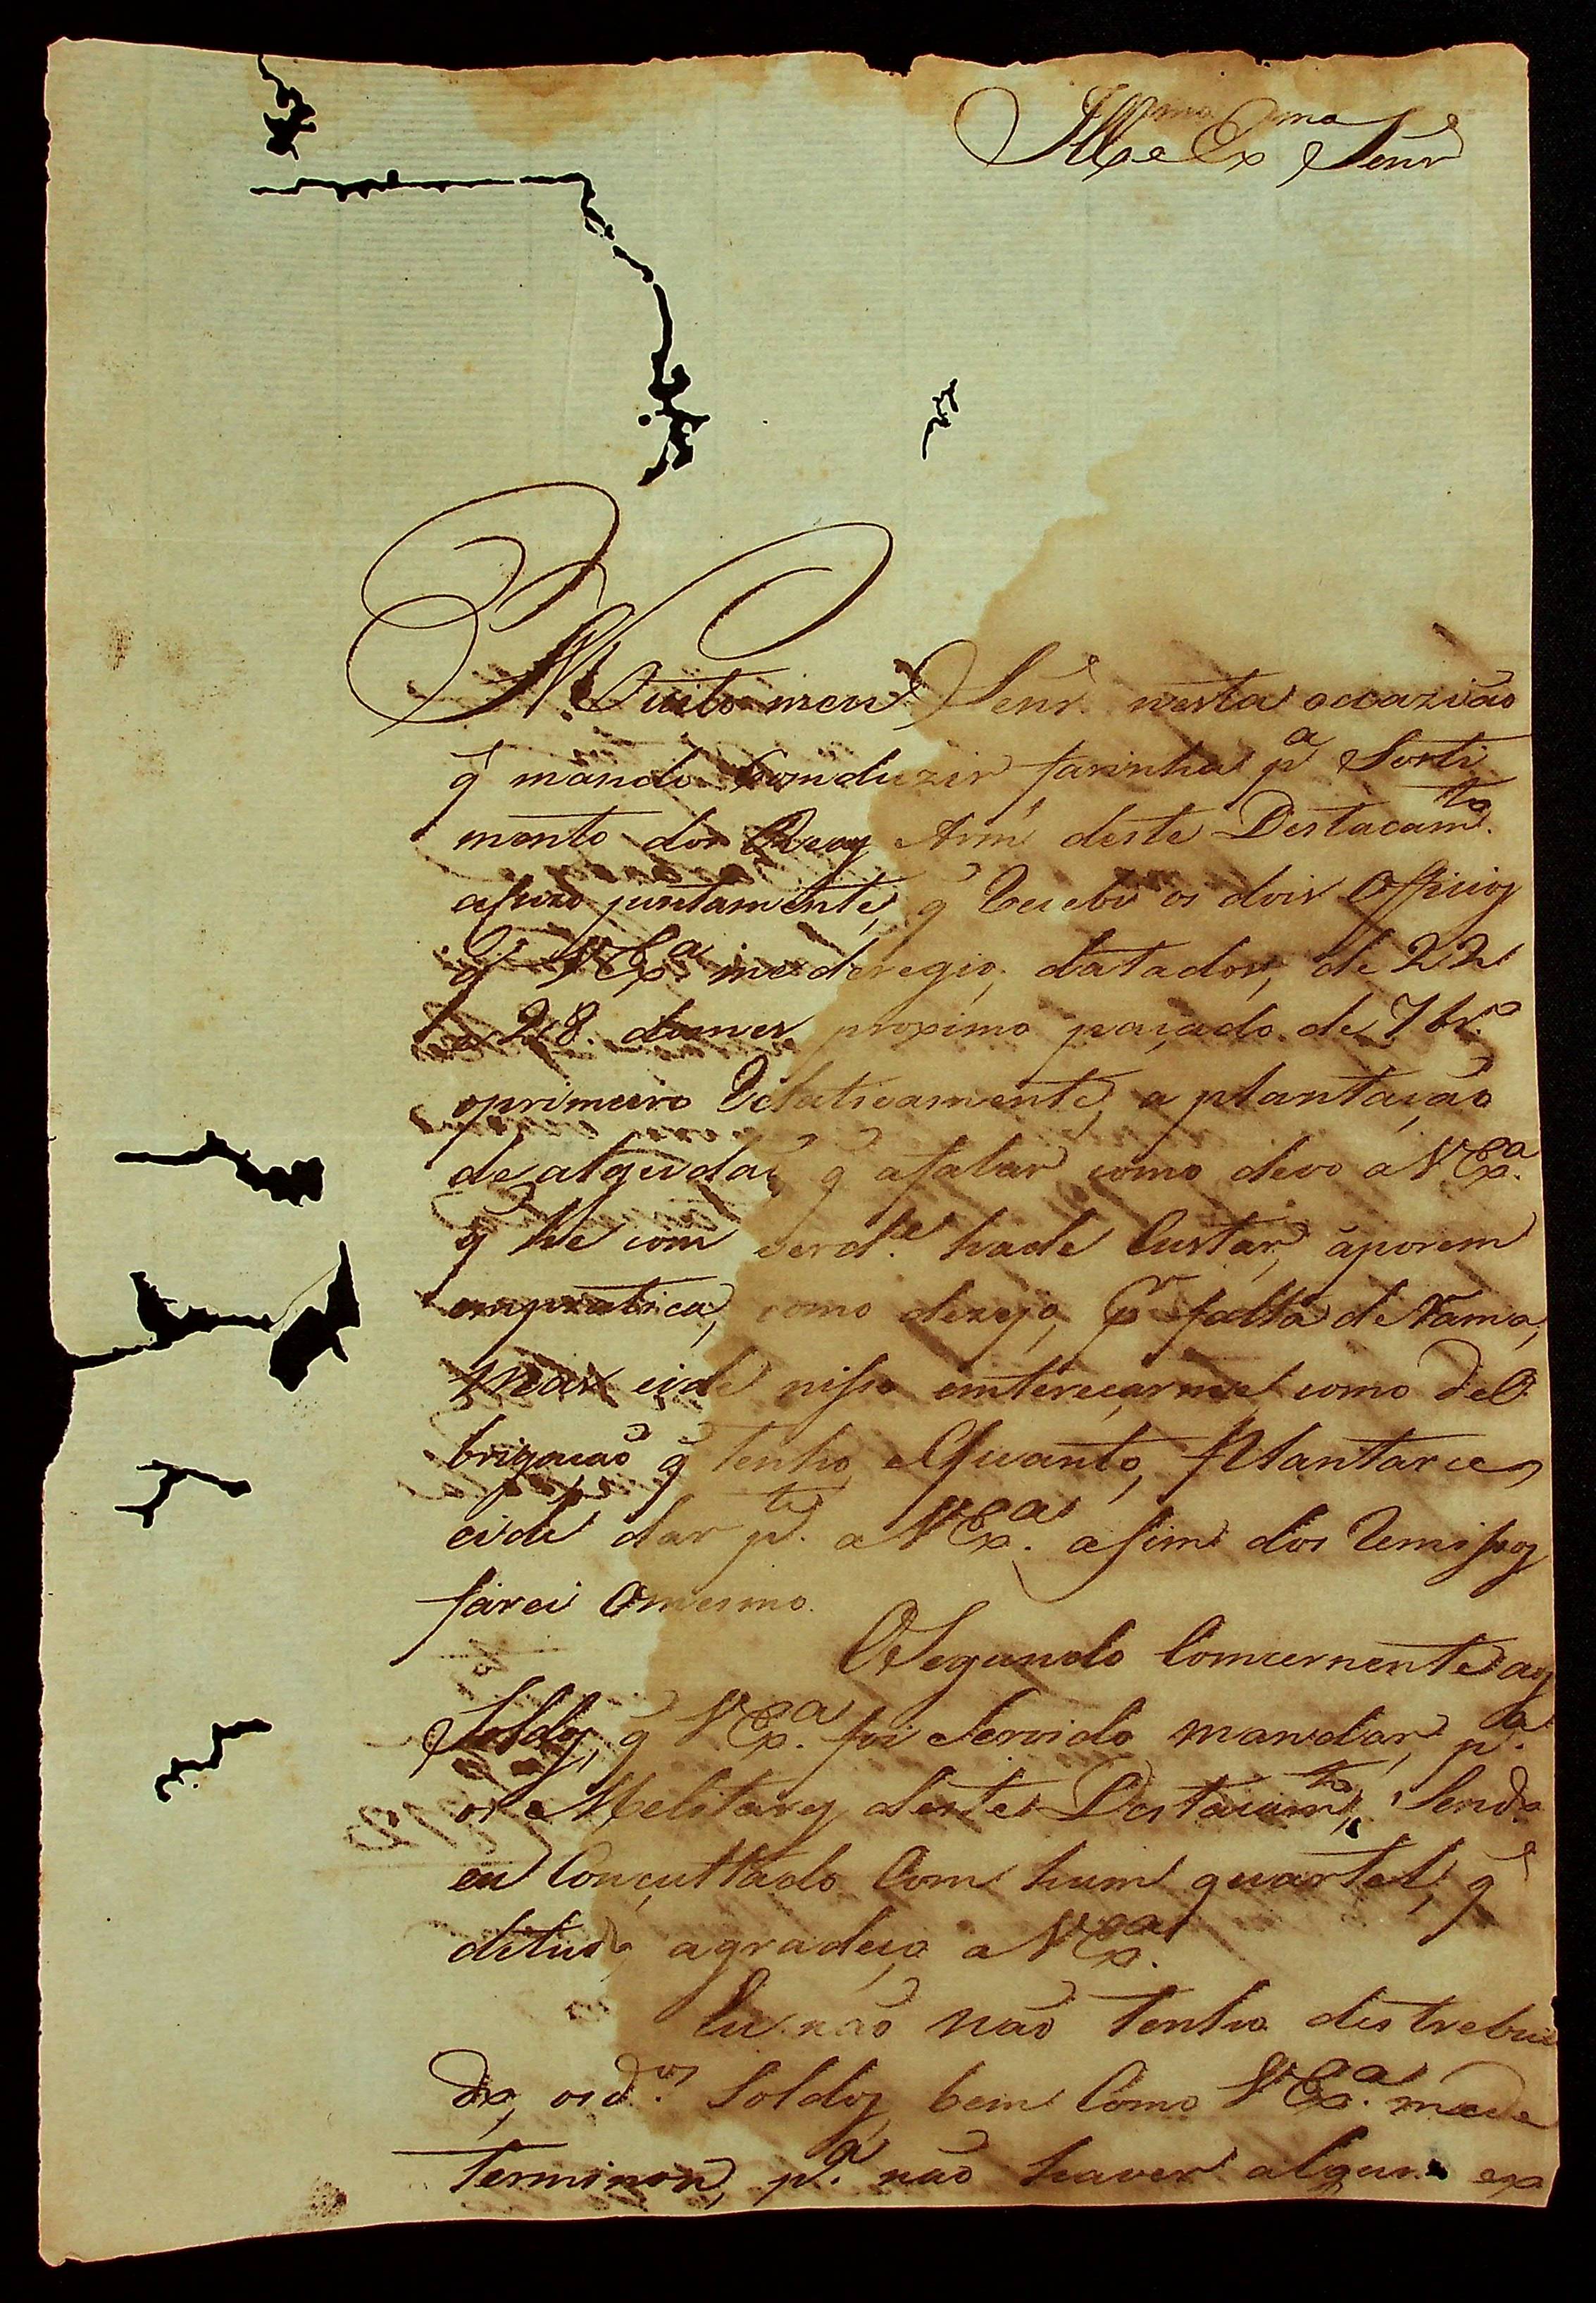 Ill.mo e Ex.mo Senr
Muito meu Senr. nesta occazião
q̃ mando Conduzir farinha p.a Sorti
mento dos Reaes Arm. deste Destacam.to
acuzo juntamente, q̃ Recebi os dois Officios
q̃ V Ex.a me deregio, datados, de 22
e 28. do mes proximo paçado de 7br.o
o primeiro Relativamente, a plantação
de algudão, q̃ a falar como devo a V Ex.a
q̃ he com verd.e hade Custar, aporem
em pratica, como dezejo, p.r falta de Rama,
mas eide nisso emtereçarme como de O
brigação q̃ tenho, e Quanto, Plantarce,
eide dar p.te a V Ex.a asim dos Remissos
farei O mesmo.
O Segundo Comcernente aos
Soldos, q̃ V Ex.a foi Servido mandar, p.a
os Melitares deste Destacam.to, Sendo
eu Conçultado Com hum quartel, q̃
de tudo agradeço a V Ex.a
Eu não não tenho destrebui
do, os d.os Soldos, bem Como V Ex.a me de
terminou, p.a não haver algum ex